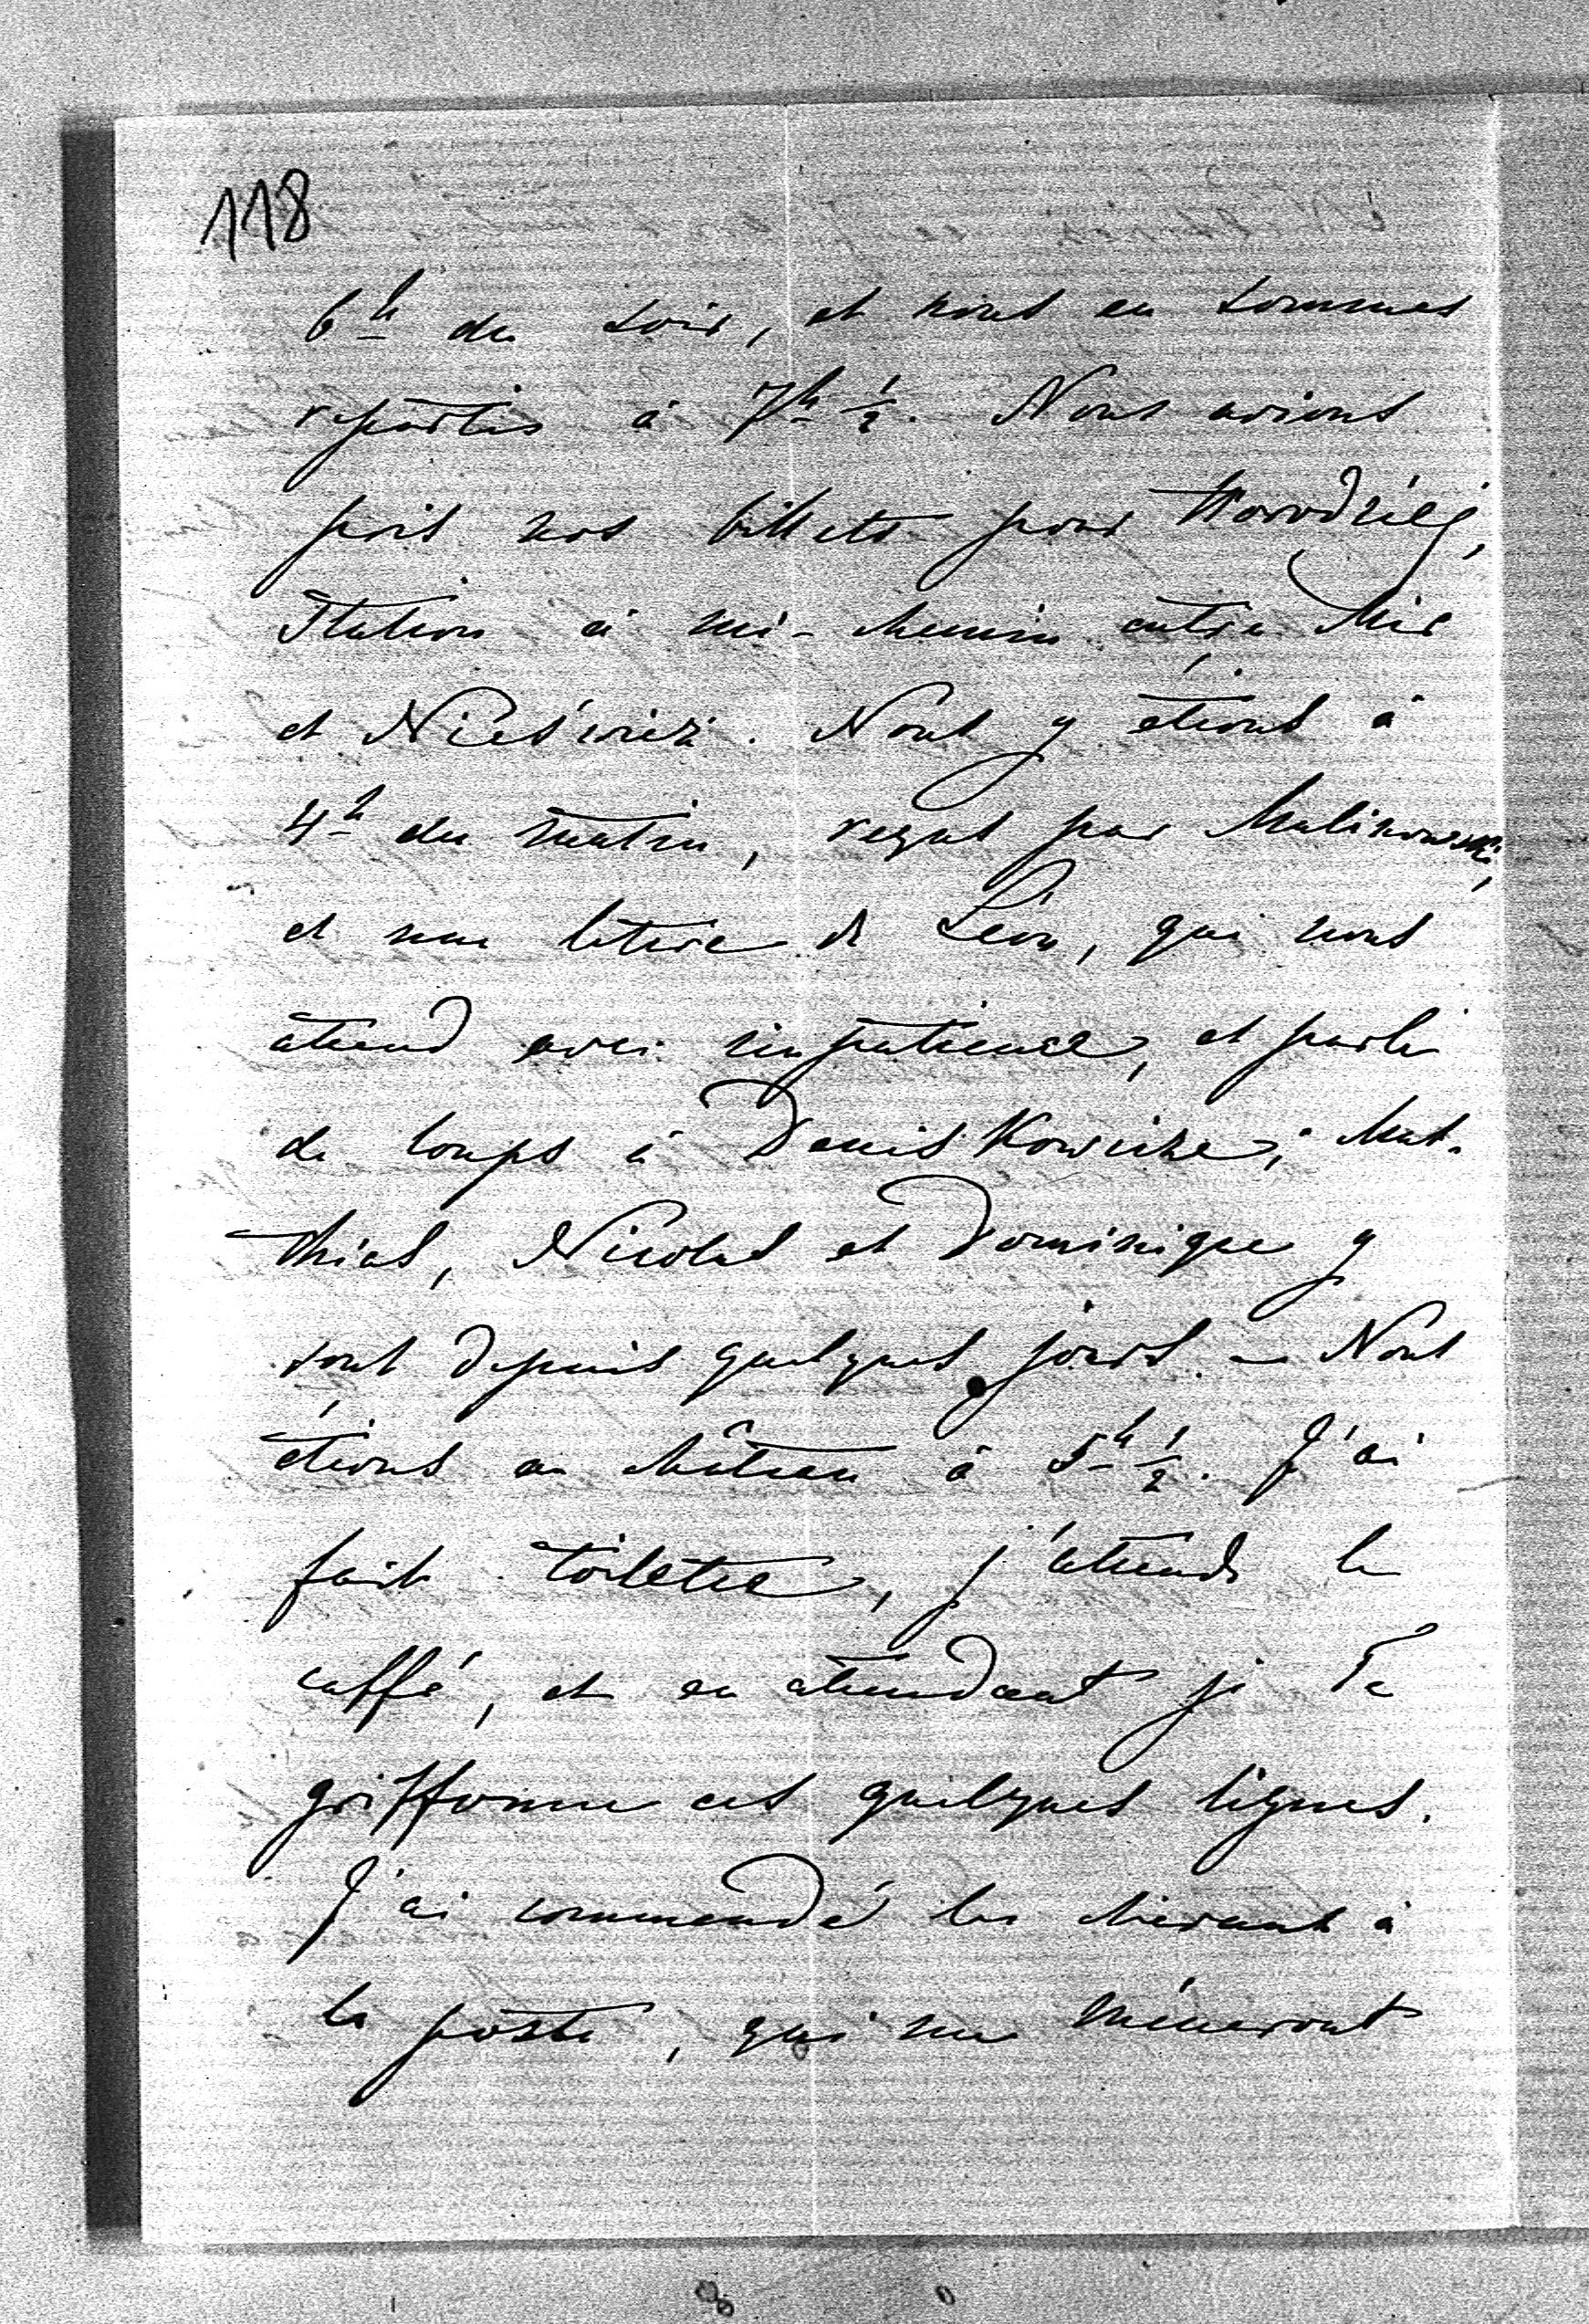 118
6h du soir, et nous en sommes
repartis à 7h 1/2. Nous avions
pris nos billets pour Horodziéj,
station à mi-chemin entre Mir
et Nieśwież. Nous y étions à
4h du matin, reçus par Malinowski,
et une lettre de Léon, qui nous
attend avec impatience, et parle
de loups à Deniskowicze; Mat-
thias, Nicolas et Dominique y
sont depuis quelques jours. — Nous
étions au château à 5h 1/2. J'ai
fait toilette, j'attends le
caffé, et en attendant je Te
griffonne ces quelques lignes.
J'ai commandé les chevaux à
la poste, qui me mèneront